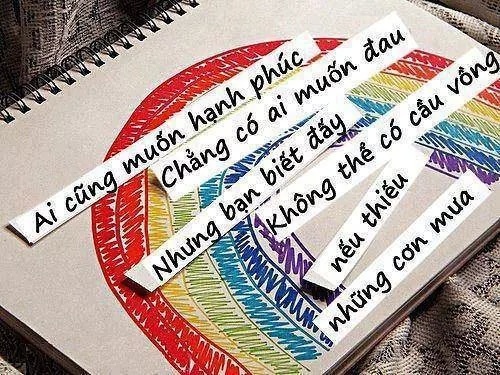 Ai cũng muốn hạnh phúc
Chẳng có ai muốn đau
Nhưng bạn biết đấy
Không thể có cầu vồng
nếu thiếu
những cơn mưa